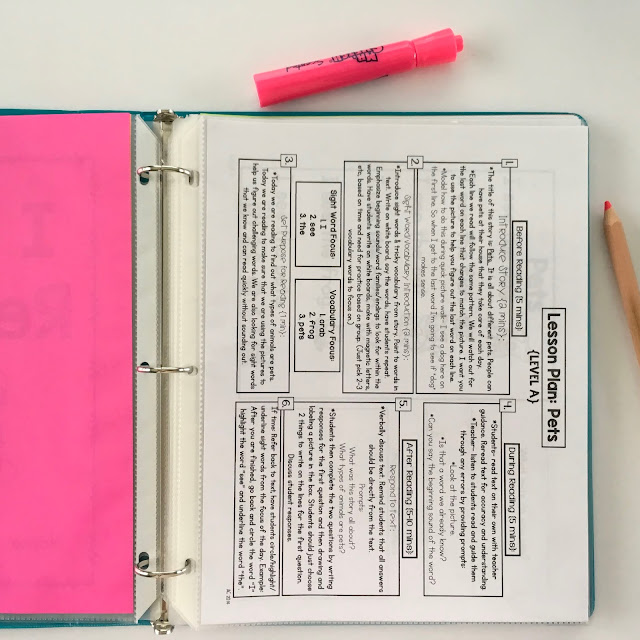 Lesson Plan: Pets
{LEVEL A}
Before Reading (5 mins)
1.
Introduce Story (3 mins):
*The title of this story is Pets. It is all about different pets. People can
have pets at their house that they take care of each day.
*Each line we read will follow the same pattern. We will watch out for
the last word on each line that changes to match the picture. I want you
to use the picture to help you figure out the last word on each line.
*Model how to do this during quick picture walk: I see a dog here on
the first line. So when I get to the last word I'm going to see if "dog"
makes sense.
2.
Sight Word/Vocabulary Introduction (3 mins):
*Introduce sight words & tricky vocabulary from story. Point to words in
text. Write on white board, say the words, have students repeat.
Emphasize beginning sound/word families/endings to look for within the
words. Have students write on white boards, make with magnetic letters,
etc. based on time and need for practice based on group. (Just pick 2-3
vocabulary words to focus on.)
Sight Word Focus:
1. I
2. see
3. the
Vocabulary Focus:
1. and
2. frog
3. pets
3.
Set Purpose for Reading (1 min):
*Today we are reading to find out what types of animals are pets.
Today we are reading to make sure that we are using the pictures to
help us figure out challenging words. We are also looking for sight words
that we know and can read quickly without sounding out.
During Reading (5 mins)
4.
*Students- read text on their own with teacher
guidance. Reread text for accuracy and understanding.
*Teacher- listen to students read and guide them
through any errors by providing prompts:
*Look at the picture.
*Is that a word we already know?
*Can you say the beginning sound of the word?
After Reading (5-10 mins)
5.
Respond to Text
*Verbally discuss text. Remind students that all answers
should be directly from the text.
Prompts:
What was this story all about?
What types of animals are pets?
*Students then complete the two questions by writing
responses for the first question and then drawing and
labeling a picture in the box. Students should just choose
2 things to write on the lines for the first question.
Discuss student responses.
6.
If time: Refer back to text, have students circle/highlight/
underline sight words from the focus of the day. Example:
After you are finished, go back and circle the word "I"
highlight the word "see" and underline the word "the".